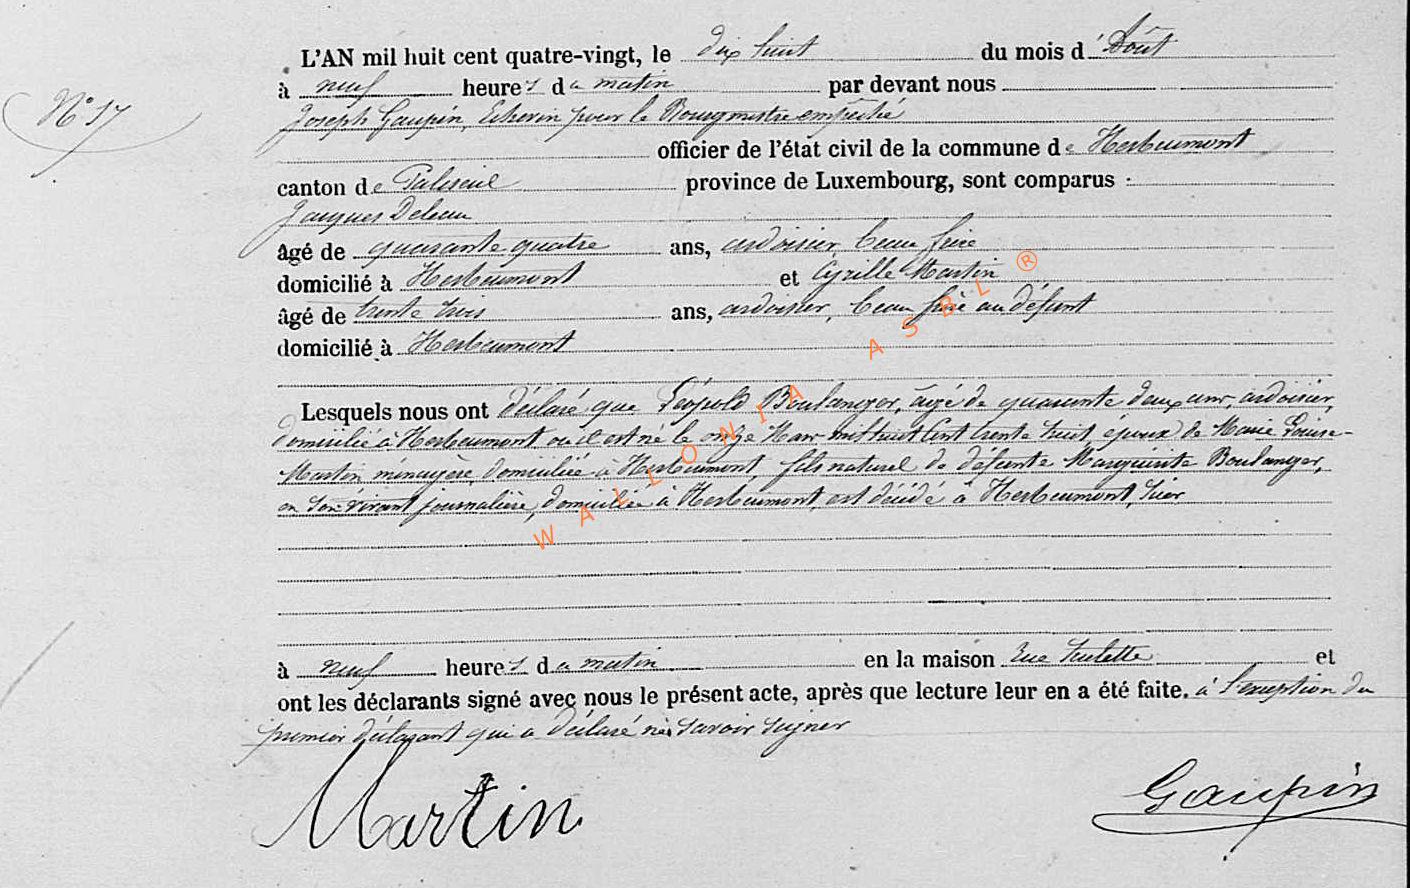 L'AN mil huit cent quatre-vingt, le dix huit du mois d'Août
à neuf heures du matin par devant nous
N° 17
Joseph Gaupin, Echevin pour le Bourgmestre empêché
officier de l'état civil de la commune de Herbeumont
canton de Paliseul province de Luxembourg, sont comparus :
Jacques Deleau
âgé de quarante quatre ans, ardoisier, beau frère
domicilié à Herbeumont et Cyrille Martin
âgé de trente trois ans, ardoisier, beau frère au défunt
domicilié à Herbeumont
Lesquels nous ont déclaré que Léopold Boulanger, âgé de quarante deux ans, ardoisier,
domicilié à Herbeumont où il est né le onze Mars mil huit Cent trente huit, époux de Marie Louise
Martin, ménagère, domiciliée à Herbeumont fils naturel de défunte Marguerite Boulanger,
en son vivant journalière, domiciliée à Herbeumont, est décédé à Herbeumont, hier
à neuf heures du matin en la maison Rue et
ont les déclarants signé avec nous le présent acte, après que lecture leur en a été faite. à l'exception du
premier déclarant qui a déclaré ne savoir signer
Martin Gaupin
WALLONIA ASBL ®